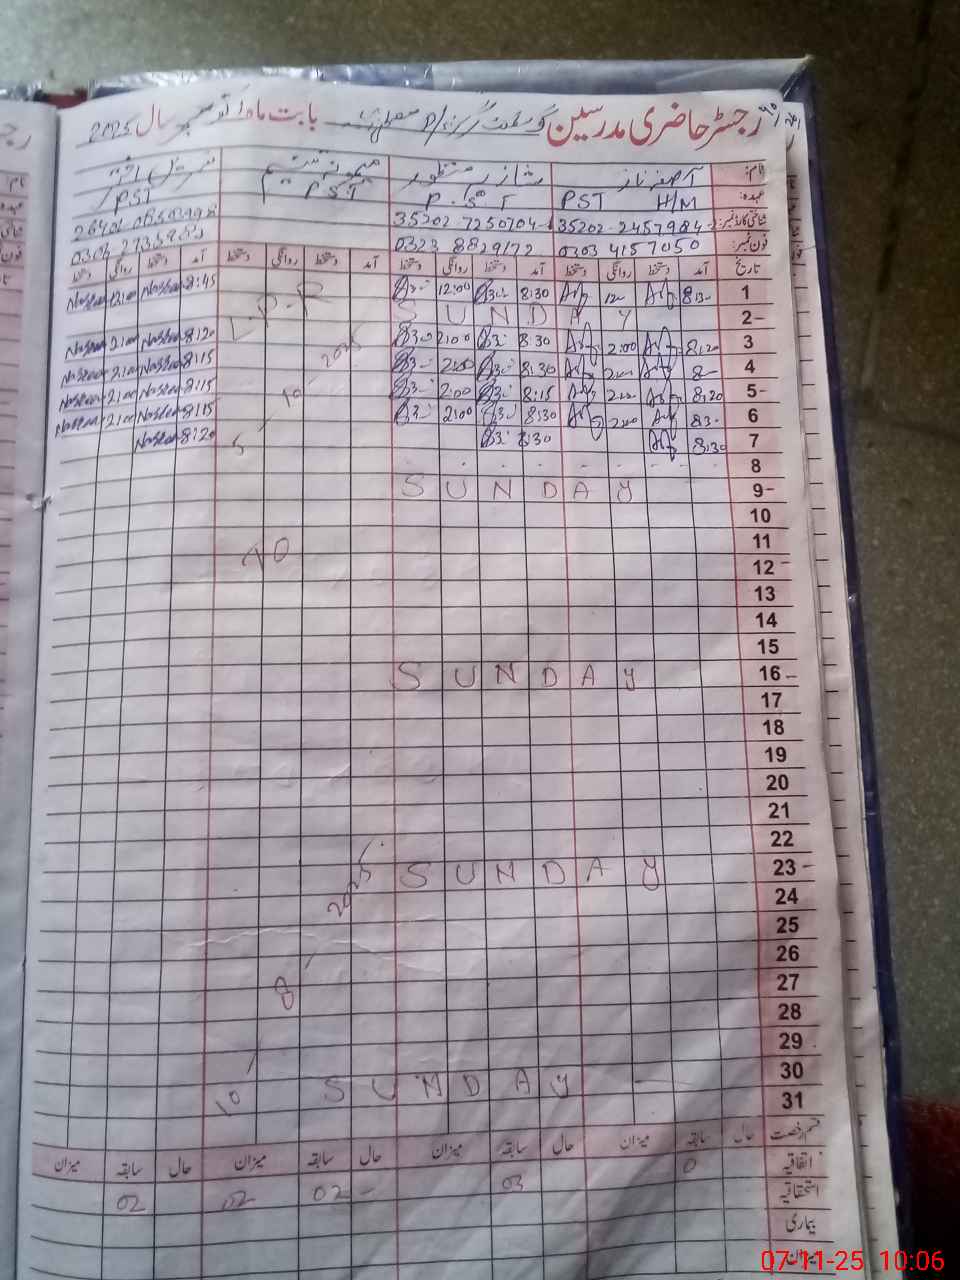 رجسٹر حاضری مدرسین گورنمنٹ گرلز P/ بابت ماہ سال 2025
نام: آصفہ ناز شازیہ منظور میمونہ
عہدہ: H/M PST P.S.T PST PST
شناختی کارڈ نمبر: 35202-2457984-2 35202-7250704-
فون نمبر: 0303 4157050 0323 8829172
تاریخ آمد دستخط روانگی دستخط آمد دستخط روانگی دستخط آمد دستخط روانگی دستخط آمد دستخط روانگی دستخط
1 8:30 12:00 8:30 12:00 L.P.R 8:45 Nosheen 12:00 Nosheen
2- SUNDAY
3 8:20 2:00 8:30 2:00 8:20 Nosheen 2:00 Nosheen
4 2:00 8:30 2:00 2025 8:15 Nosheen 2:00 Nosheen
5- 8:20 2:00 8:15 2:00 10 8:15 Nosheen 2:00 Nosheen
6 8:30 2:00 8:30 2:00 8:15 Nosheen 2:00 Nosheen
7 8:30 8:30 5 8:20 Nosheen
8
9- SUNDAY
10
11 TO
12
13
14
15
16- SUNDAY
17
18
19
20
21
22
23- SUNDAY 2025
24
25
26
27 8
28
29
30 SUNDAY
31 10
قسم رخصت حال سابقہ میزان حال سابقہ میزان حال سابقہ میزان حال سابقہ میزان
اتفاقیہ 0 03 02- 02 02
استحقاقیہ
بیماری
میزان
07-11-25 10:06